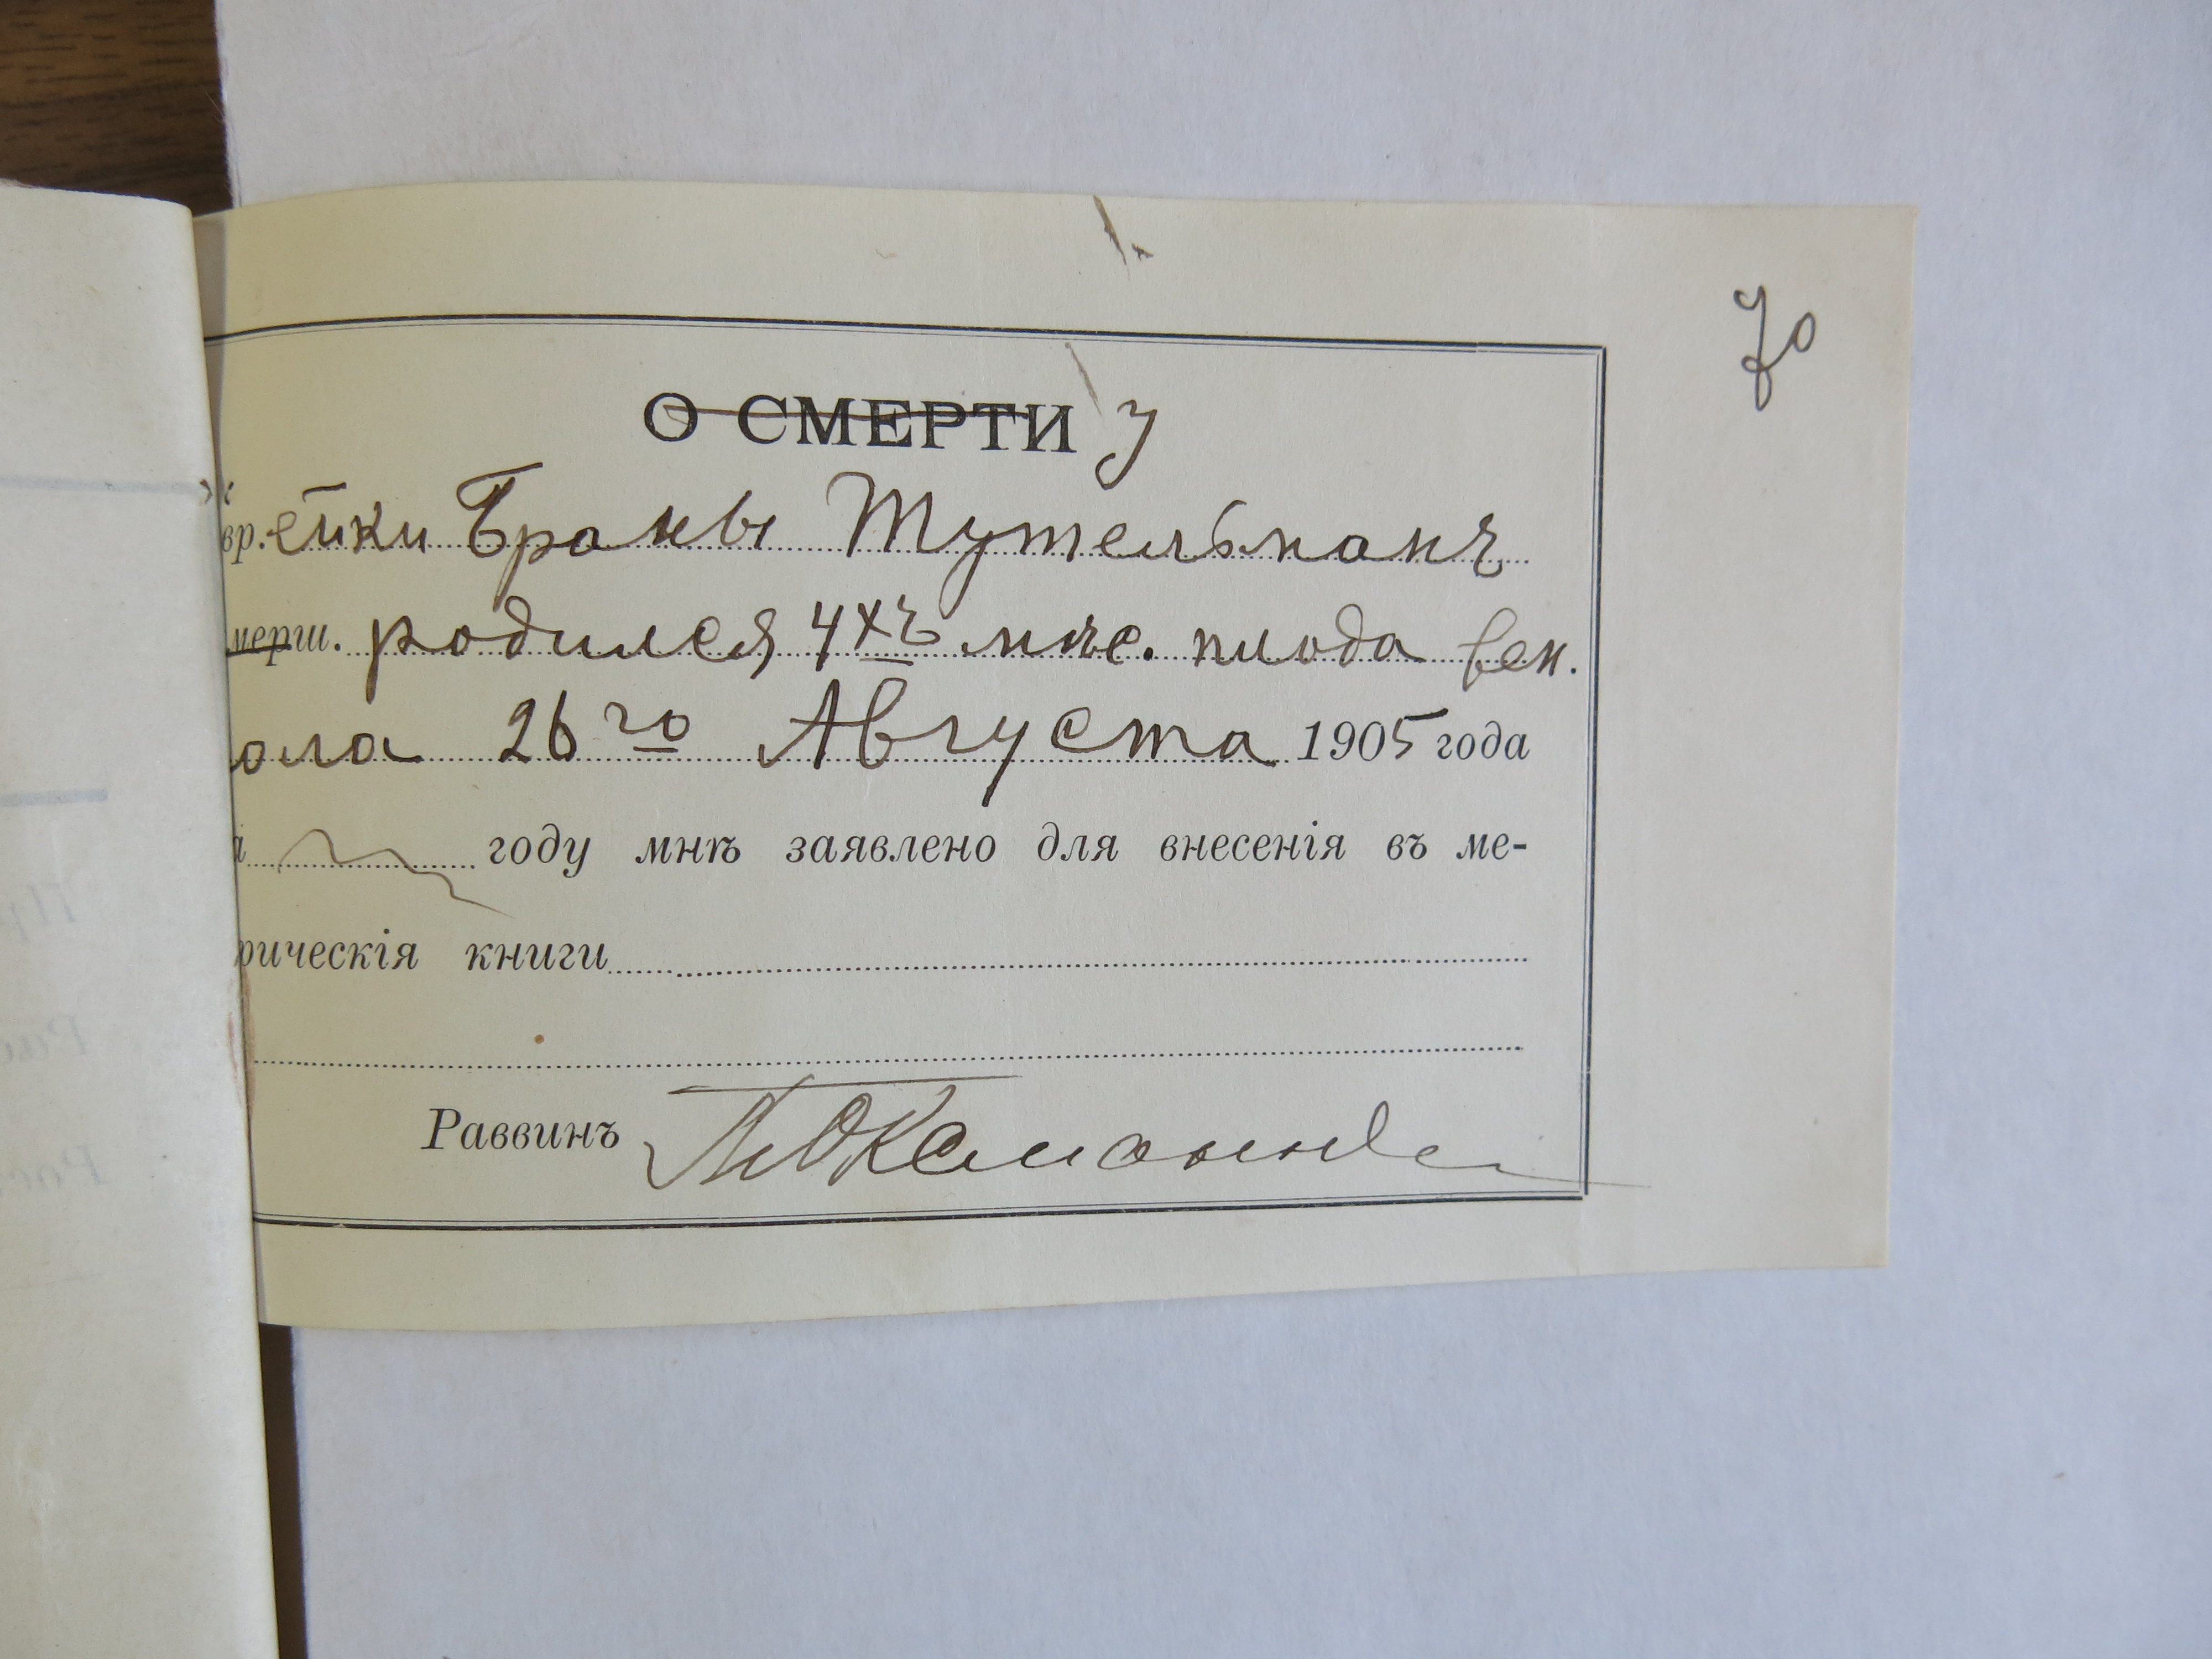 70
О СМЕРТИ У
вр. ейки Браны Тутельманъ
мерш. родился 4хъ мѣс. плода жен.
ола 26го Августа 1905 года
году мнѣ заявлено для внесенія въ ме-
рическія книги
Раввинъ